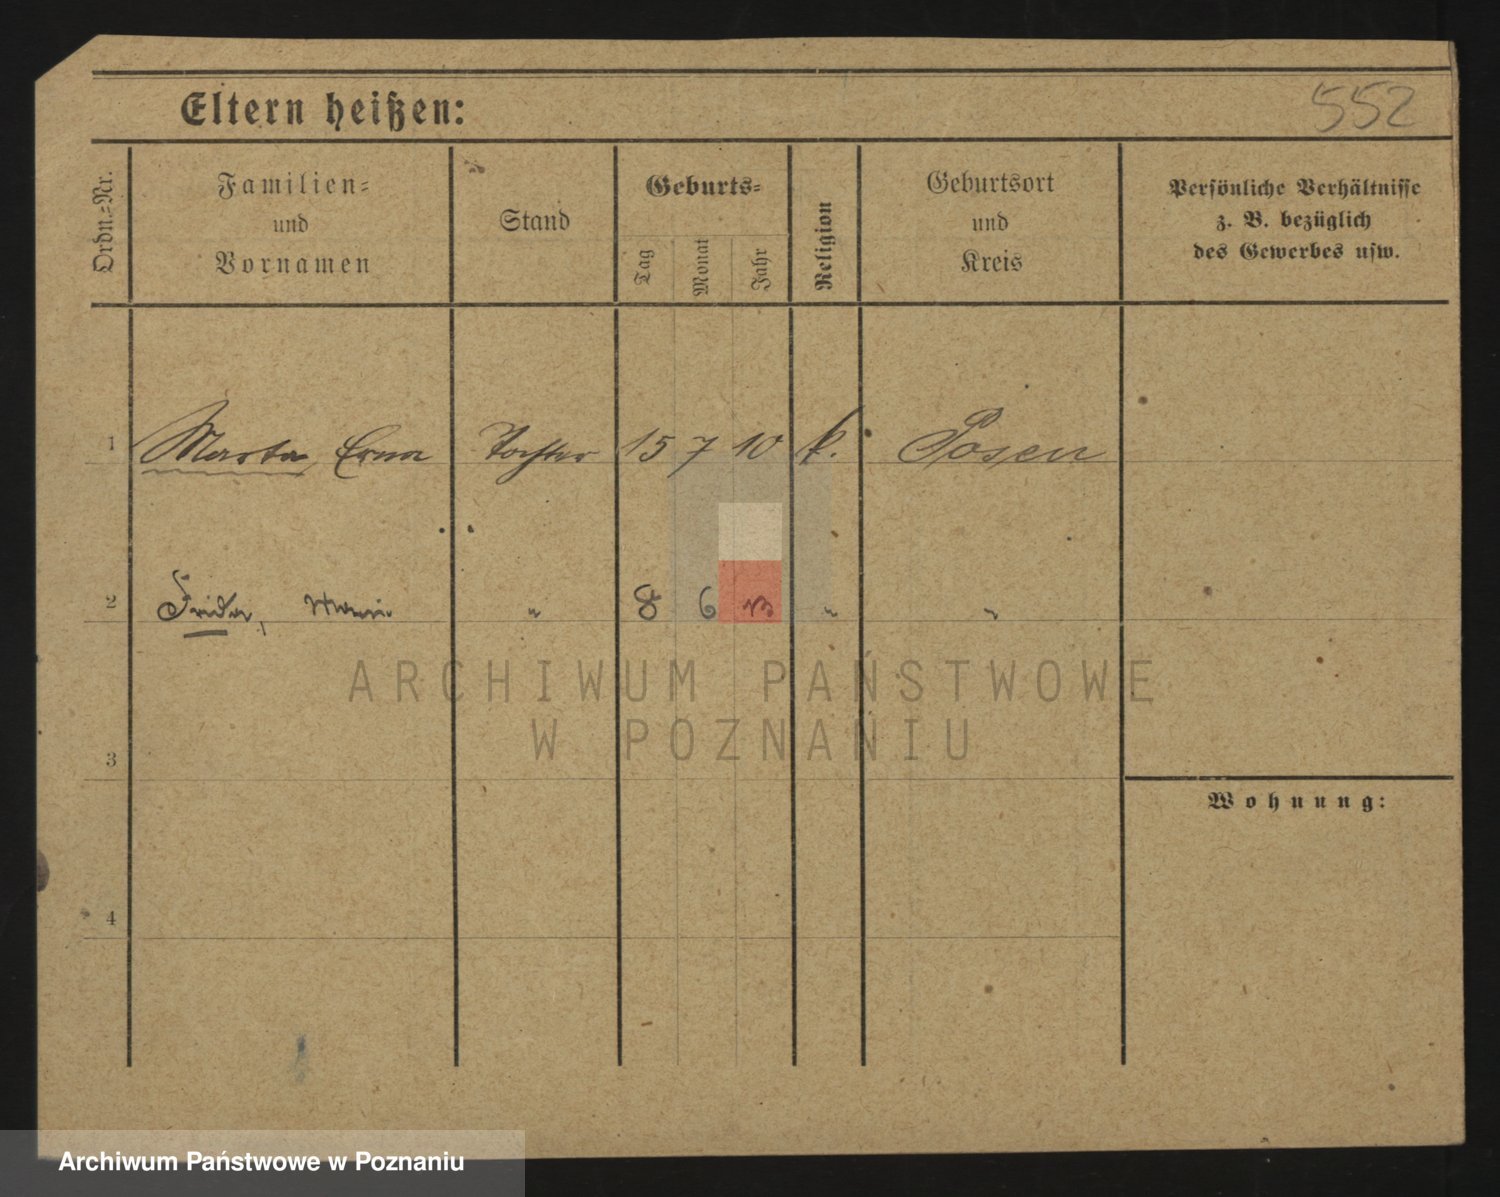 Eltern heißen: 552
Ordn.=Nr. Familien= und Vornamen Stand Geburts= Tag Monat Jahr Religion Geburtsort und Kreis Persönliche Verhältnisse z. B. bezüglich des Gewerbes usw.
1 Marta Erna Tochter 15 7 10 k. Posen
2 Frida, Marie " 8 6 13 " "
ARCHIWUM PAŃSTWOWE
W POZNANIU
3
Wohnung:
4
Archiwum Państwowe w Poznaniu